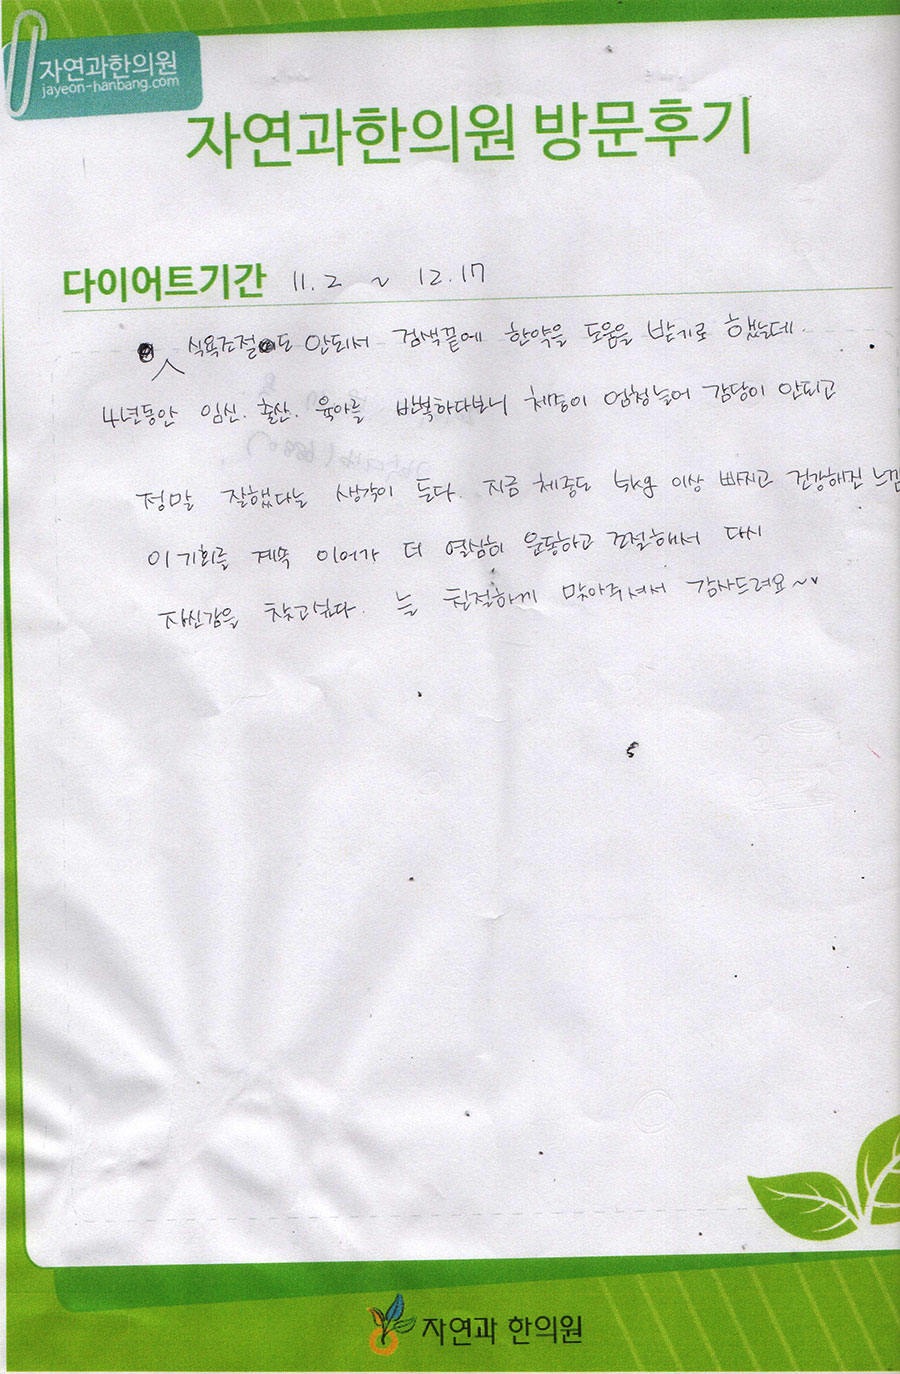 자연과한의원
jayeon-hanbang.com
자연과한의원 방문후기
다이어트기간 11.2 ~ 12.17
식욕조절도 안되서 검색끝에 한약을 도움을 받기로 했는데.
4년동안 임신. 출산. 육아를 반복하다보니 체중이 엄청늘어 감당이 안되고
정말 잘했다는 생각이 든다. 지금 체중도 이상 빠지고 건강해진 느낌
이 기회를 계속 이어가 더 열심히 운동하고 조절해서 다시
자신감을 찾고싶다. 늘 친절하게 맞아주셔서 감사드려요~
자연과 한의원